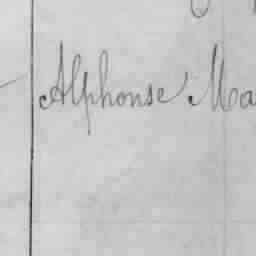 Alphonse Ma